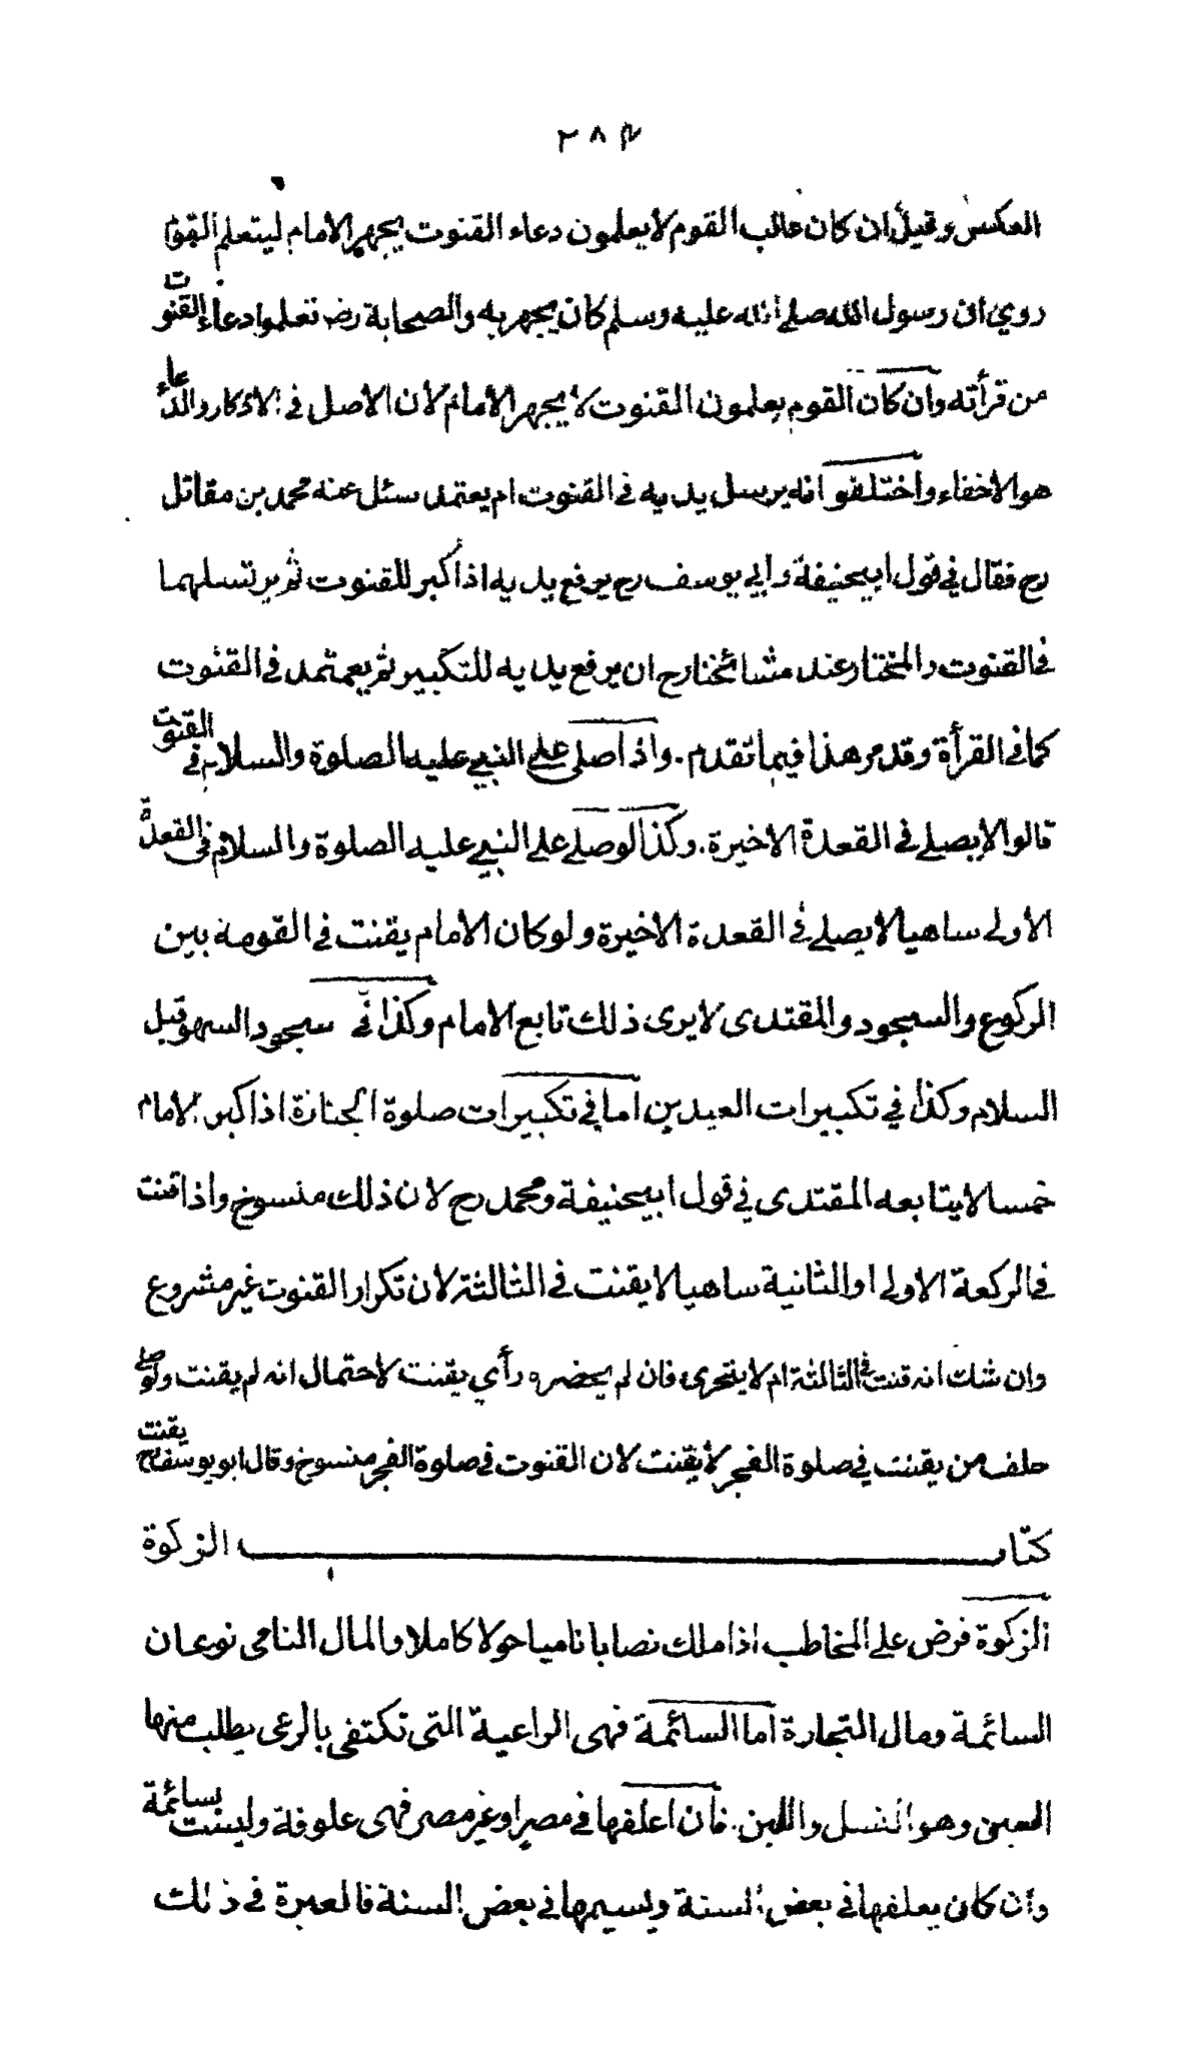 ٢٨٤
العكس وقيل ان كان غالب القوم لا يعلمون دعاء القنوت يجهر الامام ليتعلم القوم
روي ان رسول الله صلى الله عليه وسلم كان يجهر به والصحابة رضـ تعلموا دعاء القنوت
من قرأته وان كان القوم يعلمون القنوت لا يجهر الامام لان الاصل في الاذكار والدعاء
هو الاخفاء واختلفوا انه يرسل يديه في القنوت ام يعتمد سئل عنه محمد بن مقاتل
رح فقال في قول ابيحنيفة وابي يوسف رح يرفع يديه اذا كبر للقنوت ثم يرسلهما
في القنوت والمختار عند مشائخنا رح ان يرفع يديه للتكبير ثم يعتمد في القنوت
كما في القرأة وقد مر هذا فيما تقدم. واذا صلى على النبي عليه الصلوة والسلام في القنوت
قالوا لا يصلي في القعدة الاخيرة. وكذا لو صلى على النبي عليه الصلوة والسلام في القعدة
الاولى ساهيا لا يصلي في القعدة الاخيرة ولو كان الامام يقنت في القومة بين
الركوع والسجود والمقتدى لا يرى ذلك تابع الامام وكذا في سجود السهو قبل
السلام وكذا في تكبيرات العيدين اما في تكبيرات صلوة الجنازة اذا كبر الامام
خمسا لا يتابعه المقتدى في قول ابيحنيفة ومحمد رح لان ذلك منسوخ واذا قنت
في الركعة الاولى او الثانية ساهيا لا يقنت في الثالثة لان تكرار القنوت غير مشروع
وان شك انه قنت في الثالثة ام لا يتحرى فان لم يحضره رأي يقنت لاحتمال انه لم يقنت ولو صلى
خلف من يقنت في صلوة الفجر لا يقنت لان القنوت في صلوة الفجر منسوخ وقال ابو يوسف رح يقنت
كتاب الزكوة
الزكوة فرض على المخاطب اذا ملك نصابا ناميا حولا كاملا والمال النامى نوعان
السائمة ومال التجارة اما السائمة فهى الراعية التى تكتفى بالرعى يطلب منها
العين وهو النسل واللبن. فان اعلفها في مصر او غير مصر فهى علوفة وليست بسائمة
وان كان يعلفها في بعض السنة ويسيمها في بعض السنة فالعبرة في ذلك